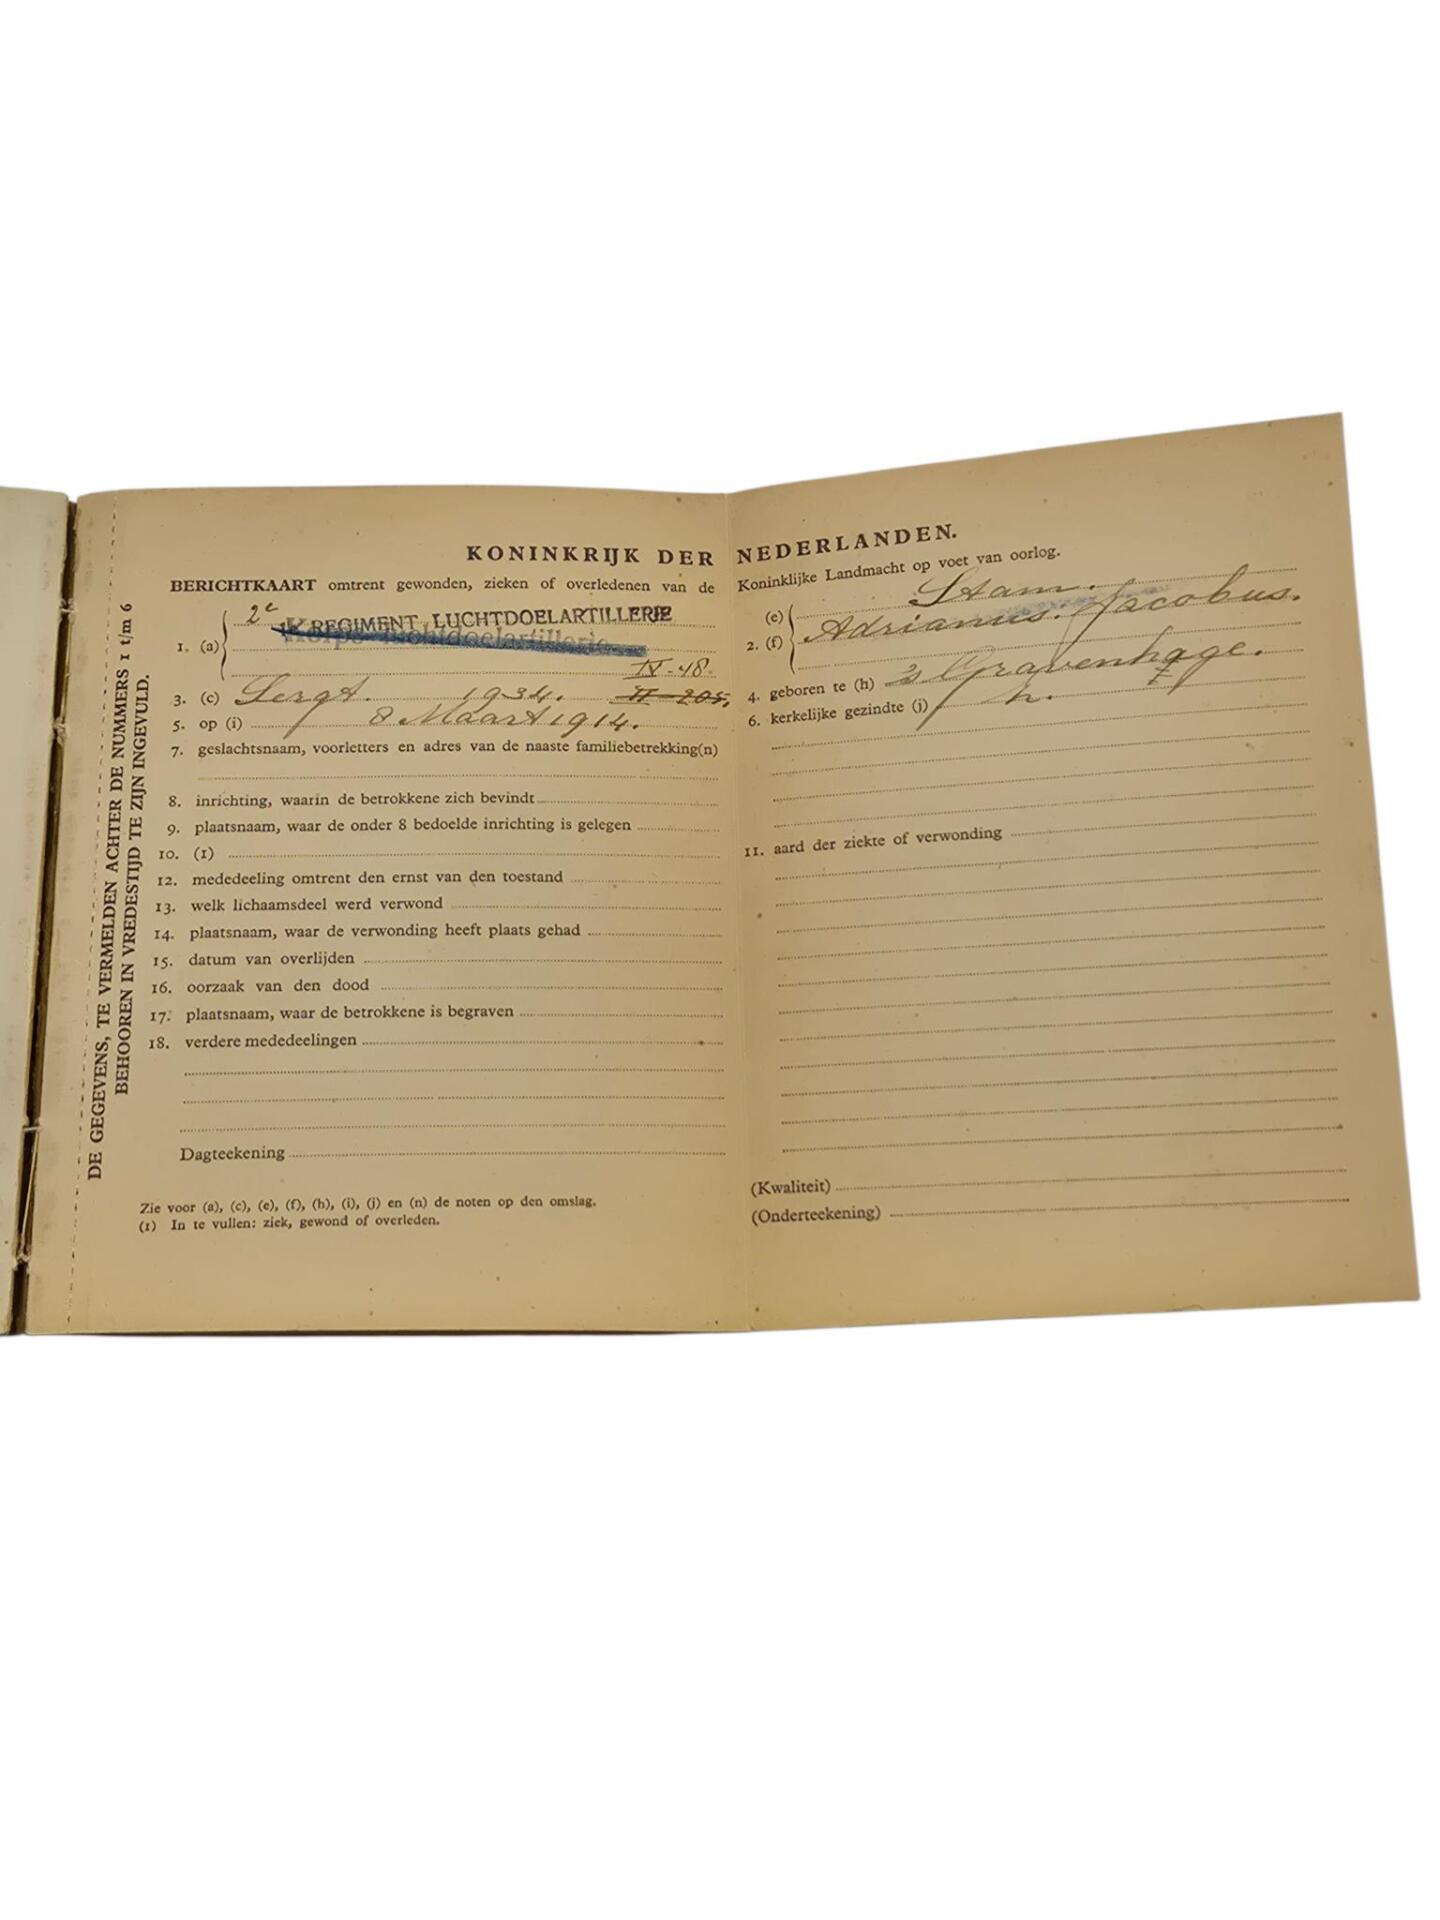 DE GEGEVENS, TE VERMELDEN ACHTER DE NUMMERS 1 t/m 6
BEHOOREN IN VREDESTIJD TE ZIJN INGEVULD.
KONINKRIJK DER NEDERLANDEN.
BERICHTKAART omtrent gewonden, zieken of overledenen van de Koninklijke Landmacht op voet van oorlog.
1. (a) 2e REGIMENT LUCHTDOELARTILLERIE
Korps Luchtdoelartillerie
2. (e) Stam.
(f) Adrianus. Jacobus.
IV-48.
3. (c) Sergt. 1934. II-205.
4. geboren te (h) 's Gravenhage.
5. op (i) 8 Maart 1914.
6. kerkelijke gezindte (j)
7. geslachtsnaam, voorletters en adres van de naaste familiebetrekking(n)
8. inrichting, waarin de betrokkene zich bevindt
9. plaatsnaam, waar de onder 8 bedoelde inrichting is gelegen
10. (1)
11. aard der ziekte of verwonding
12. mededeeling omtrent den ernst van den toestand
13. welk lichaamsdeel werd verwond
14. plaatsnaam, waar de verwonding heeft plaats gehad
15. datum van overlijden
16. oorzaak van den dood
17. plaatsnaam, waar de betrokkene is begraven
18. verdere mededeelingen
Dagteekening
(Kwaliteit)
(Onderteekening)
Zie voor (a), (c), (e), (f), (h), (i), (j) en (n) de noten op den omslag.
(1) In te vullen: ziek, gewond of overleden.